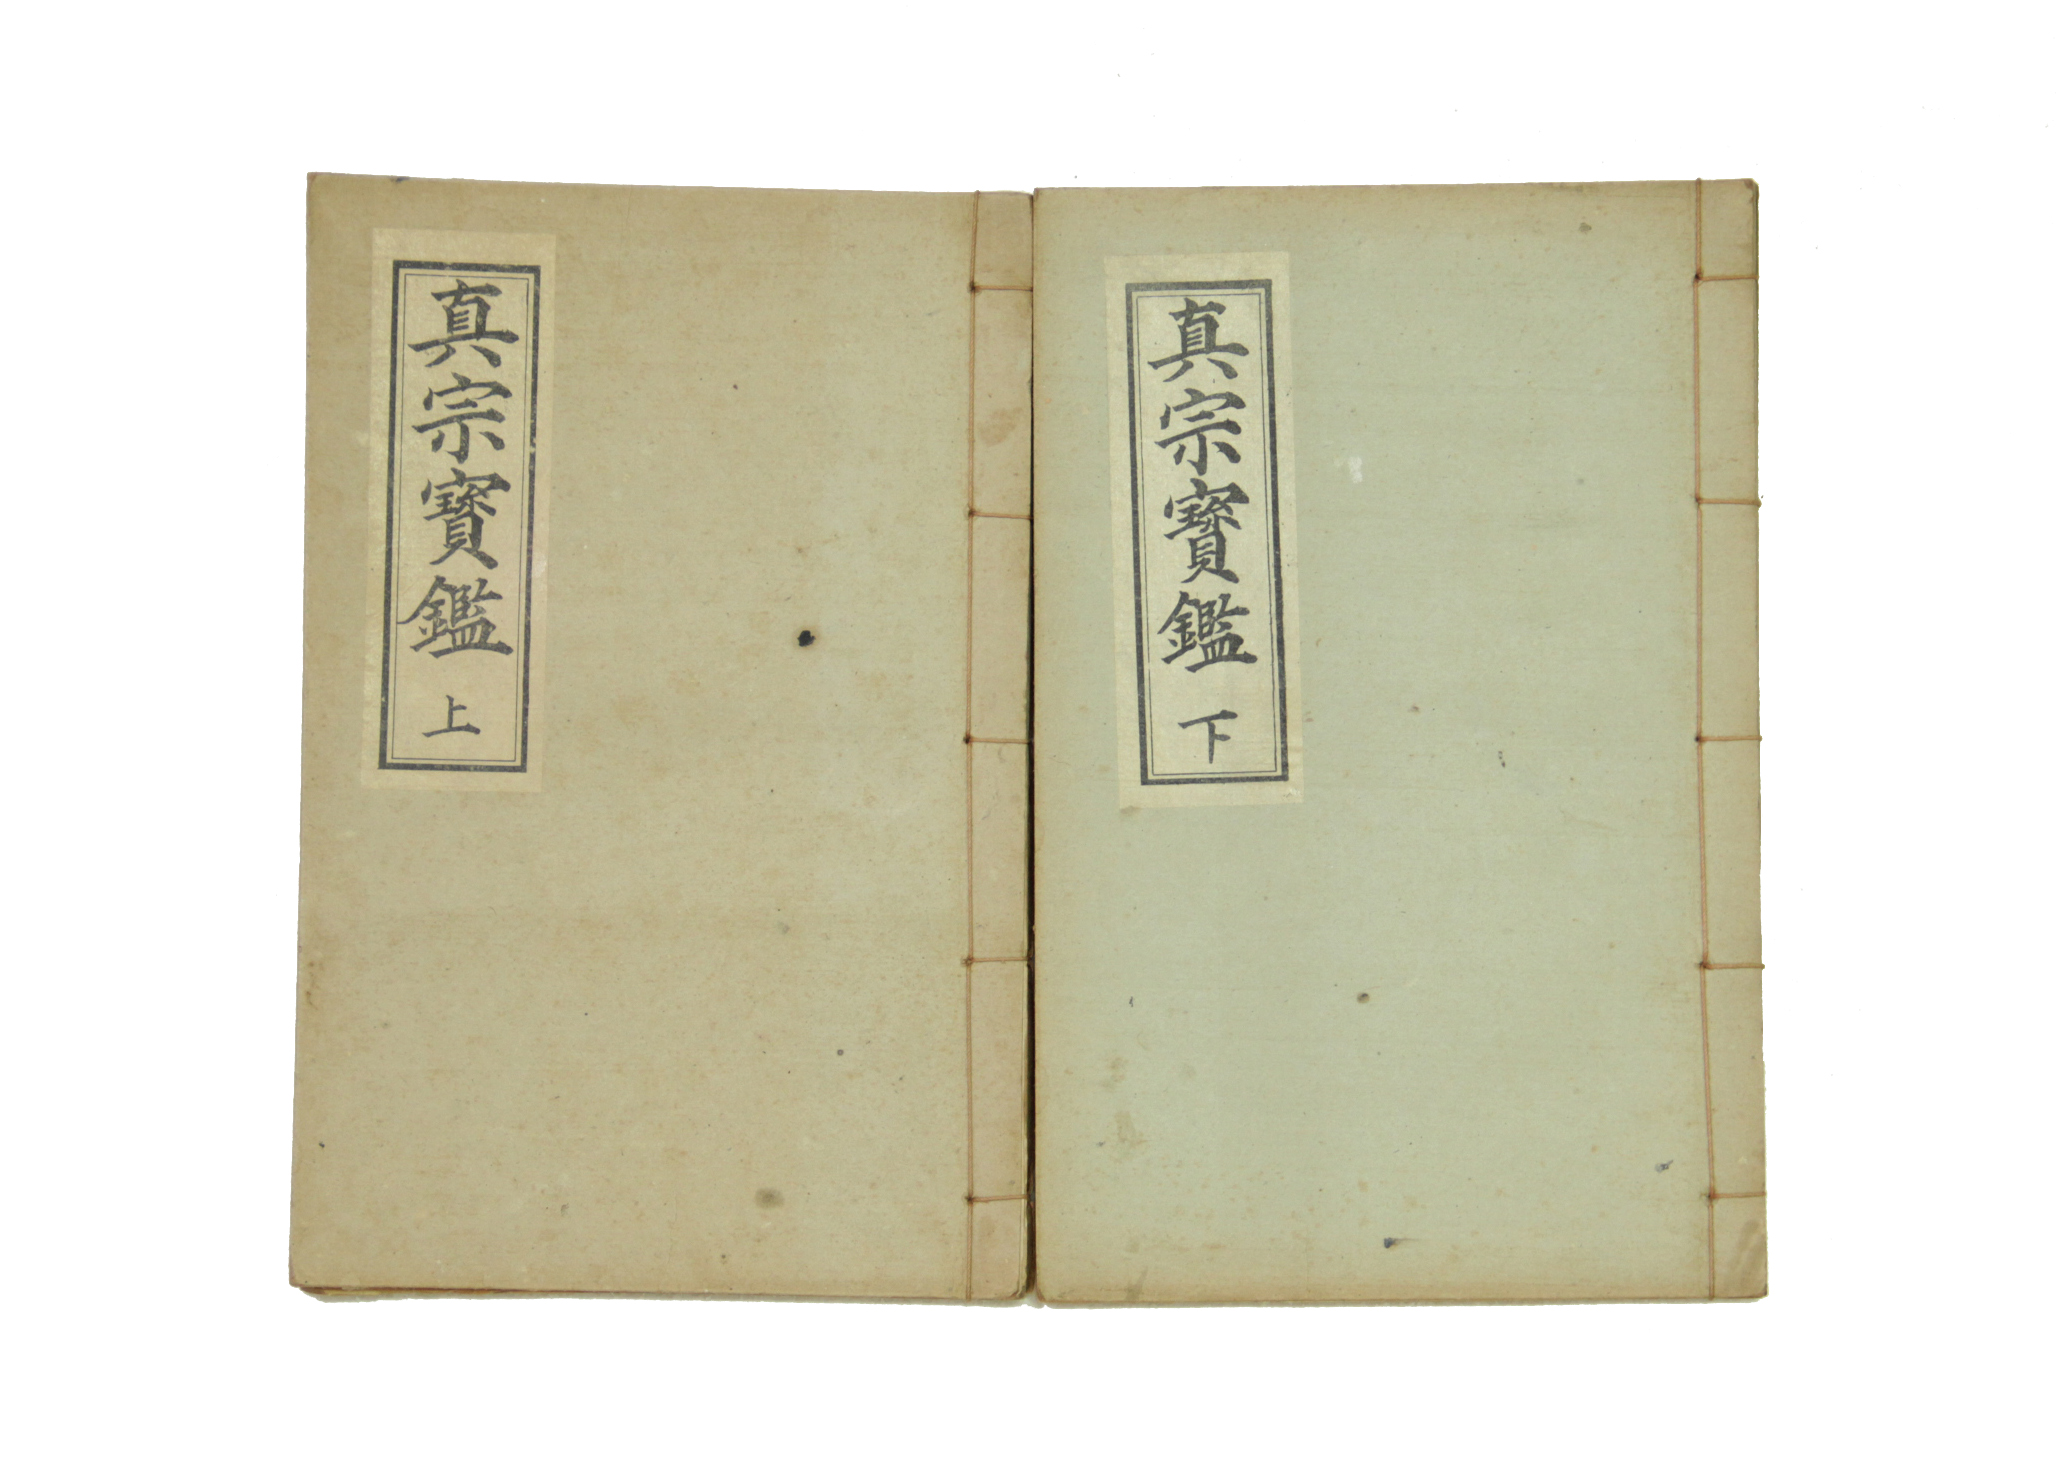 真宗寳鑑 上
真宗寳鑑 下